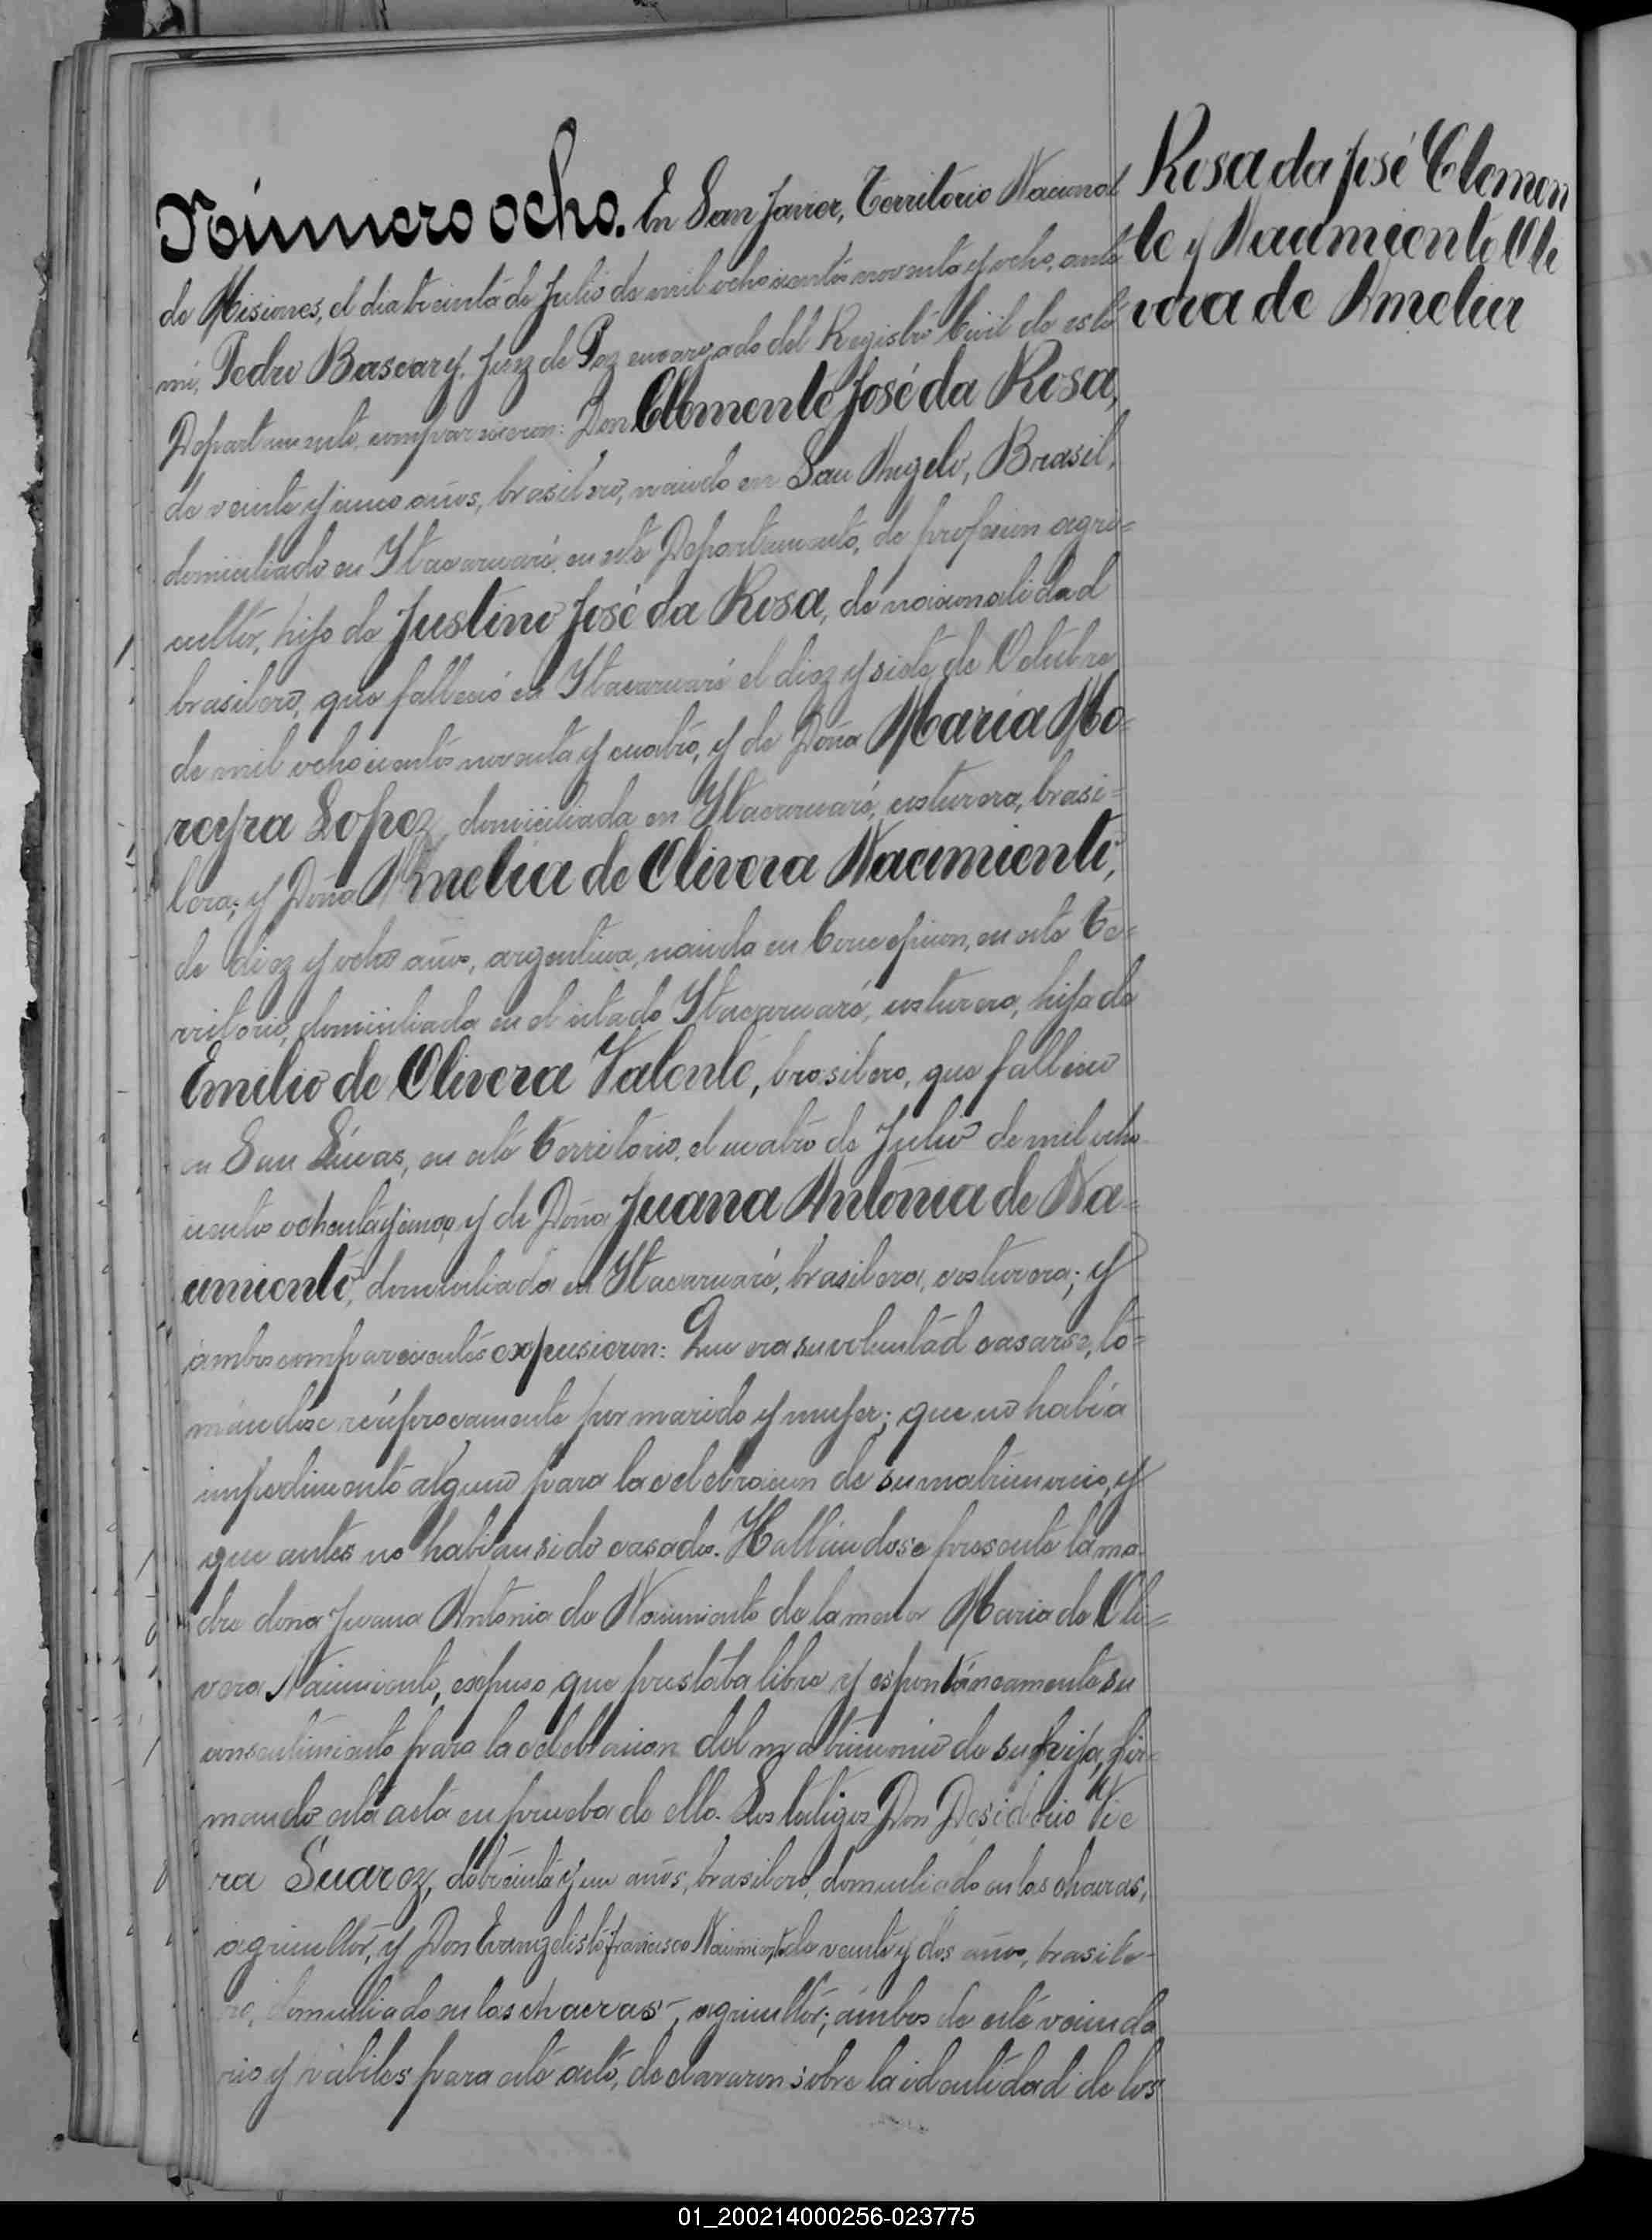 Rosa da José Clemen
te y Nacimiento Oli
vera de Amelia
Número ocho. En San Javier, Territorio Nacional
de Misiones, el dia treinta de Julio de mil ochocientos noventa y ocho, ante
mi, Pedro Bascary, Juez de Paz encargado del Registro Civil de este
Departamento, comparecieron: Don Clemente José da Rosa,
de veinte y cinco años, brasilero, nacido en San Angelo, Brasil,
domiciliado en Itacaruaré, en este Departamento, de profesion agri=
cultor, hijo de Justino José da Rosa, de nacionalidad
brasilero, que falleció en Itacaruaré el diez y siete de Octubre
de mil ochocientos noventa y cuatro, y de Doña Maria Mo=
reyra Lopez, domiciliada en Itacaruaré, costurera, brasi=
lera; y Doña Amelia de Olivera Nacimiento,
de diez y ocho años, argentina, nacida en Concepcion, en este Te=
rritorio, domiciliada en el citado Itacaruaré, costurera, hija de
Emilio de Olivera Valente, brasilero, que falleció
en San Lúcas, en este Territorio, el cuatro de Julio de mil ocho
cientos ochenta y cinco, y de Doña Juana Antonia de Na=
cimiento, domiciliada en Itacaruaré, brasilera, costurera; y
ambos comparecientes expusieron: Que era su voluntad casarse, to=
mándose recíprocamente por marido y mujer; que no había
impedimento alguno para la celebracion de su matrimonio, y
que antes no habían sido casados. Hallándose presente la ma
dre doña Juana Antonia de Nacimiento de la menor Maria de Oli=
vera Nacimiento, expuso que prestaba libre y espontáneamente su
consentimiento para la celebracion del matrimonio de su hija, fir=
mando esta acta en prueba de ello. Los testigos Don Desiderio Vie
ra Suarez, de treinta y un años, brasilero, domiciliado en las chacras,
agricultor, y Don Evangelisto Francisco Nacimiento, de veinte y dos años, brasile-
ro, domiciliado en las chacras, agricultor; ámbos de este vecinda
rio y hábiles para este acto, declararon sobre la identidad de los
01_200214000256-023775